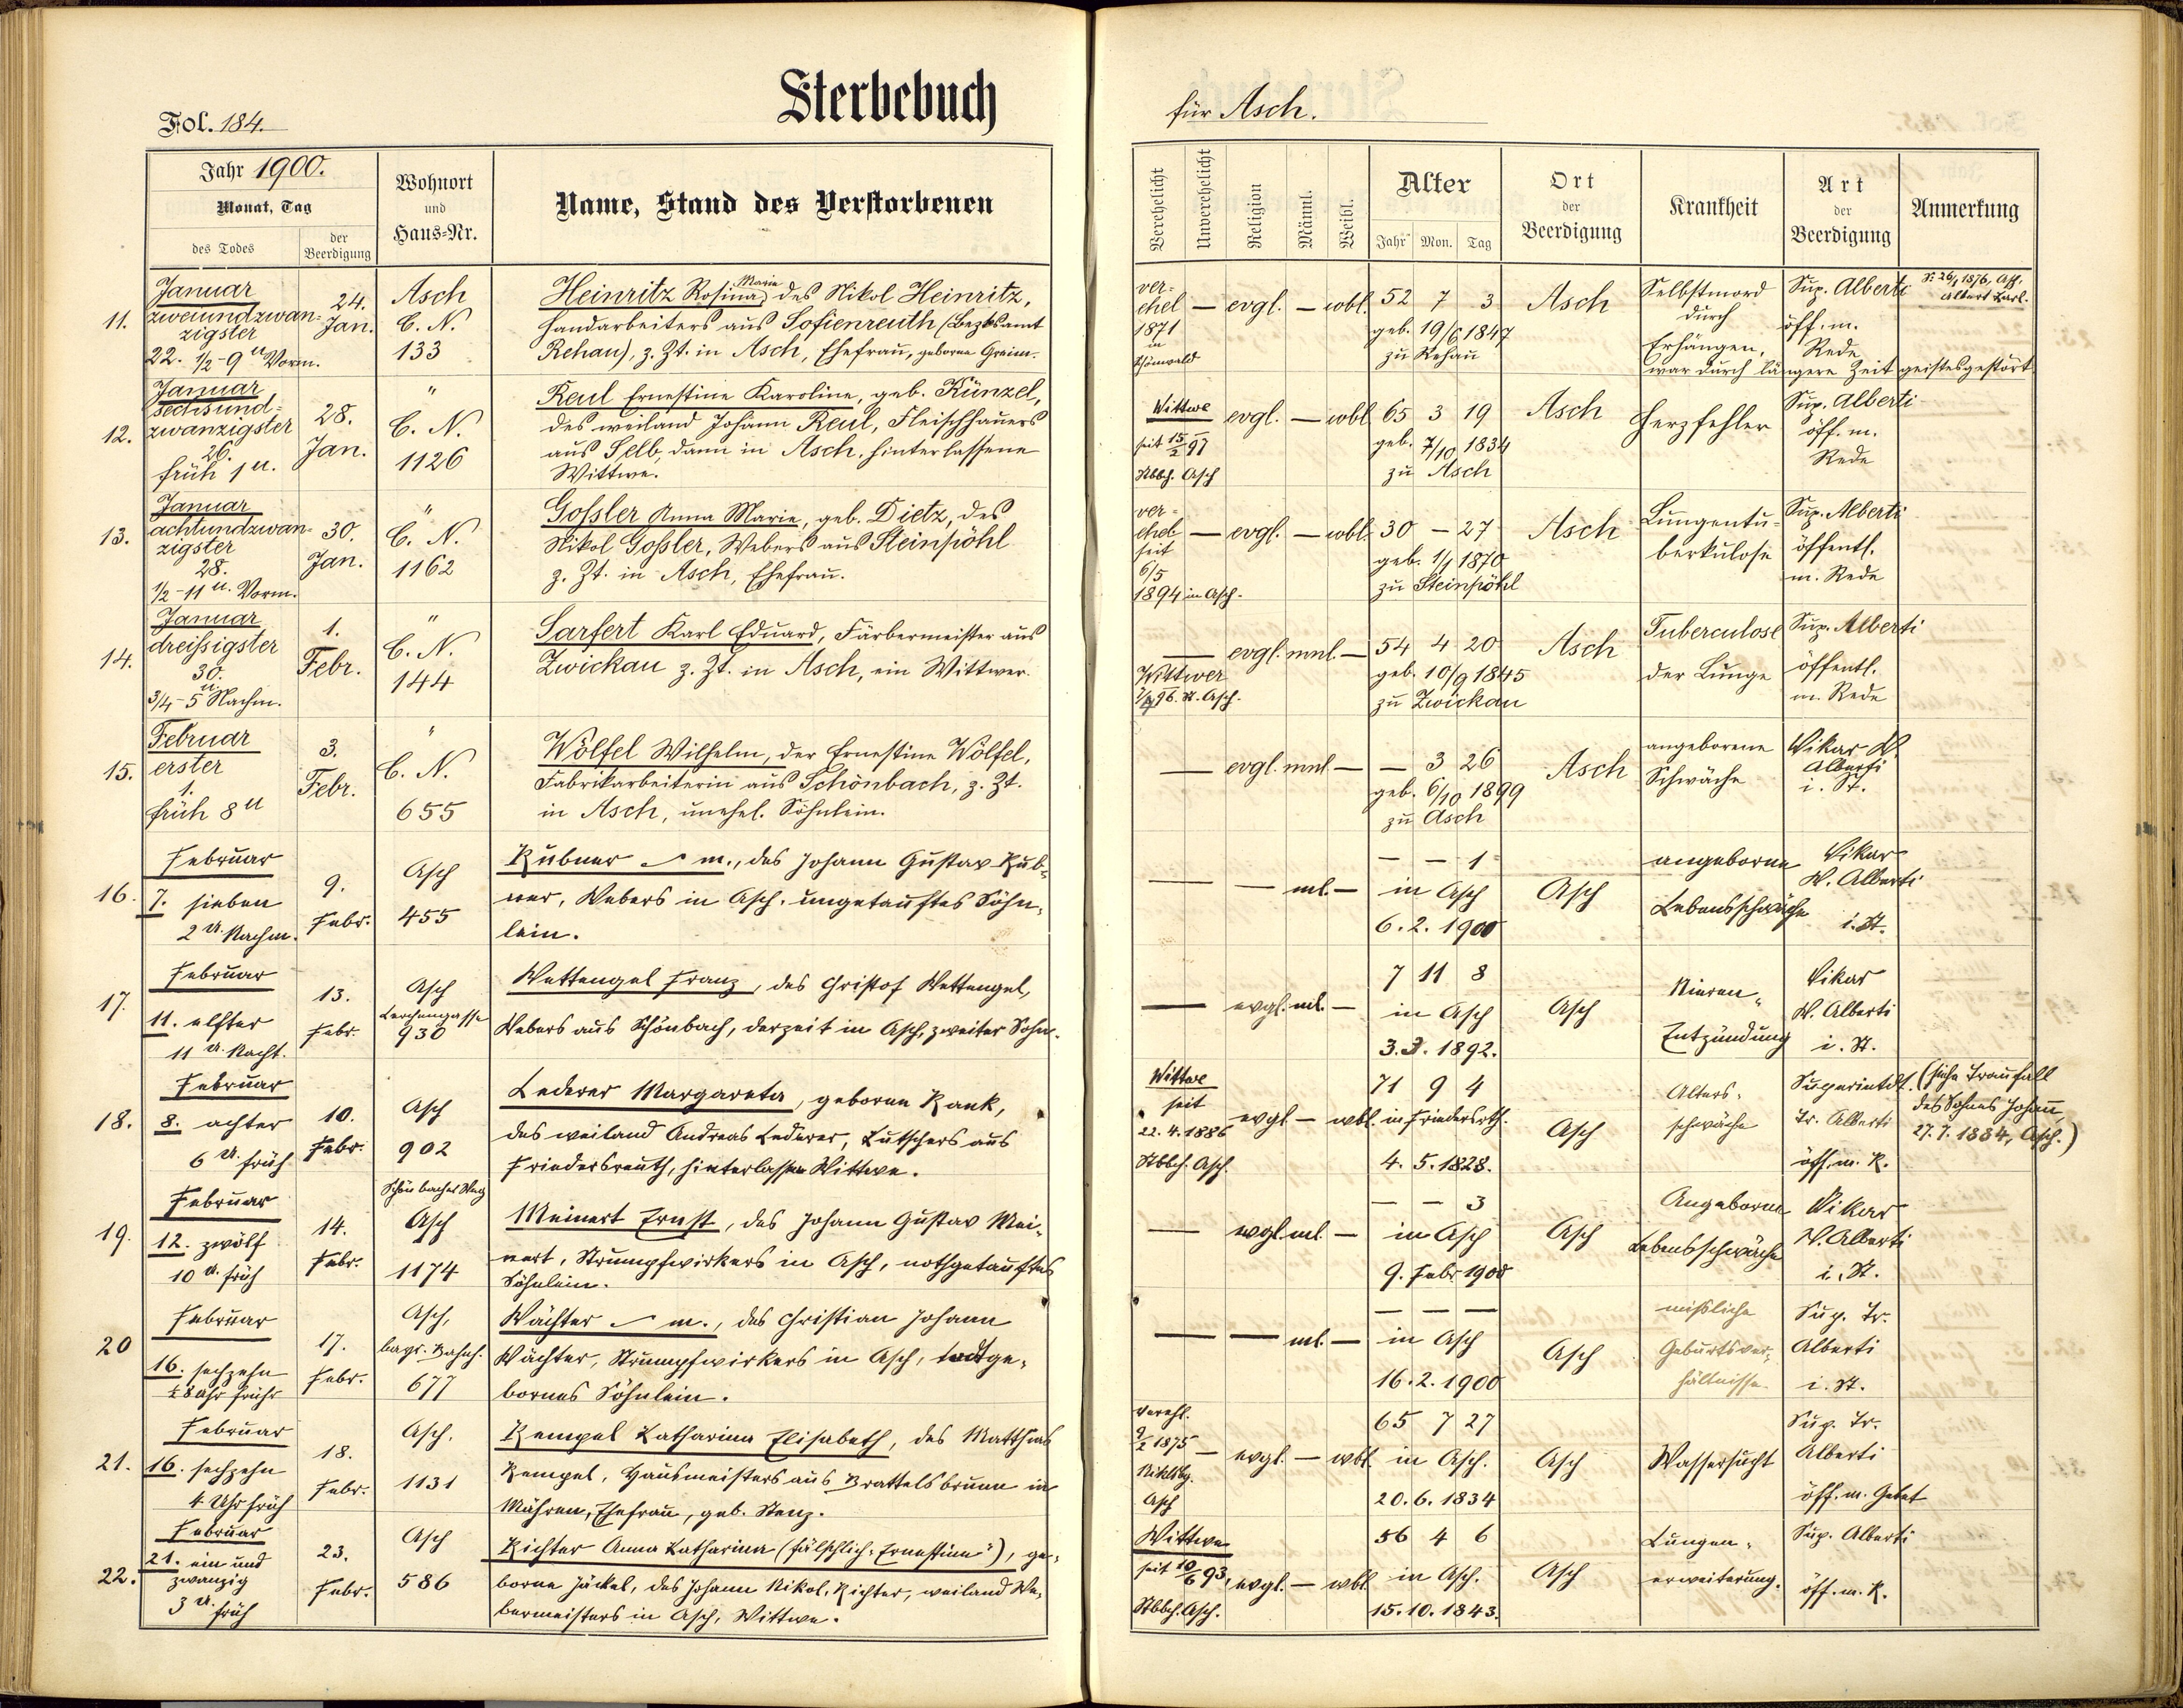 Fol. 184.
Sterbebuch
für Asch.
Jahr 1900.
Monat, Tag
des Todes
der Beerdigung
Wohnort
und
Haus-Nr.
Name, Stand des Verstorbenen
Verehelicht
Unverehelicht
Religion
Männl.
Weibl.
Alter
Jahr Mon. Tag
Ort
der
Beerdigung
Krankheit
Art
der
Beerdigung
Anmerkung
11.
Januar
zweiundzwan-
zigster
22. ½-9 u Vorm.
24.
Jan.
Asch
C. N.
133
Heinritz Rosina Marie, des Nikol Heinritz,
Handarbeiters aus Sofienreuth (Bezksamt
Rehau), z. Zt. in Asch, Ehefrau, geborne Greim.
ver-
ehel — evgl. — wbl. 52 7 3
1871
in
Schönwald
geb. 19/6 1847
zu Rehau
Asch
Selbstmord
durch
Erhängen,
war durch längere Zeit geistesgestört
Sup. Alberti
öff. m.
Rede
26/1 1876, Asch.
Albert Karl.
12.
Januar
sechsund-
zwanzigster
26.
früh 1 u.
28.
Jan.
"
C. N.
1126
Reul Ernestine Karoline, geb. Künzel,
des weiland Johann Reul, Fleischhauers
aus Selb, dann in Asch, hinterlassene
Wittwe.
Wittwe
seit 15/2 97
Stbbch. Asch
evgl. — wbl 65 3 19
geb. 7/10 1834
zu Asch
Asch
Herzfehler
Sup. Alberti
öff. m.
Rede
13.
Januar
achtundzwan-
zigster
28.
½-11 u. Vorm.
30.
Jan.
"
C. N.
1162
Goßler Anna Marie, geb. Dietz, des
Nikol Goßler, Webers aus Steinpöhl
z. Zt. in Asch, Ehefrau.
ver-
ehel — evgl. — wbl. 30 — 27
seit
6/5
1894 in Asch.
geb. 1/1 1870
zu Steinpöhl
Asch
Lungentu-
berkulose
Sup. Alberti
öffentl.
m. Rede
14.
Januar
dreißigster
30.
¾-5 u Nachm.
1.
Febr.
"
C. N.
144
Sarfert Karl Eduard, Färbermeister aus
Zwickau z. Zt. in Asch, ein Wittwer.
— evgl. mnl. — 54 4 20
Wittwer
geb. 10/9 1845
zu Zwickau
Asch
Tuberculose
der Lunge
Sup. Alberti
öffentl.
m. Rede
15.
Februar
erster
1.
früh 8 u
3.
Febr.
"
C. N.
655
Wölfel Wilhelm, der Ernestine Wölfel,
Fabrikarbeiterin aus Schönbach, z. Zt.
in Asch, unehel. Söhnlein.
— evgl. mnl — — 3 26
geb. 6/10 1899
zu Asch
Asch
angeborene
Schwäche
Vikar W.
Alberti
i. St.
16.
Februar
7. sieben
2 U. Nachm.
9.
Febr.
Asch
455
Kübner m., des Johann Gustav Küb-
ner, Webers in Asch, ungetauftes Söhn-
lein.
— — ml. —
— — 1
in Asch
6. 2. 1900
Asch
angeborne
Lebensschwäche
Vikar
W. Alberti
i. St.
17.
Februar
11. elfter
11 U. Nacht.
13.
Febr.
Asch
Lerchengasse
930
Wettengel Franz, des Christof Wettengel,
Webers aus Schönbach, derzeit in Asch, zweiter Sohn.
— evgl. ml. —
7 11 8
in Asch
3. 3. 1892.
Asch
Nieren-
Entzündung
Vikar
W. Alberti
i. St.
18.
Februar
8. achter
6 U. früh
10.
Febr.
Asch
902
Lederer Margareta, geborne Rank,
des weiland Andreas Lederer, Kutschers aus
Friedersreuth, hinterlassene Wittwe.
Wittwe
seit
22. 4. 1886
Stbbch. Asch.
evgl — wbl.
71 9 4
in Friedersrth.
4. 5. 1828.
Asch
Alters-
schwäche
Superintdt.
Tr. Alberti
öff. m. R.
(siehe Traufall
des Sohnes Johann
27. 7. 1884, Asch.)
19.
Februar
12. zwölf
10 U. früh
14.
Febr.
Schönbacher Weg
Asch
1174
Meinert Ernst, des Johann Gustav Mei-
nert, Strumpfwirkers in Asch, nothgetauftes
Söhnlein.
— evgl. ml. —
— — 3
in Asch
9. Febr 1900
Asch
Angeborne
Lebensschwäche
Vikar
W. Alberti
i. St.
20
Februar
16. sechzehn
½ 8 Uhr früh
17.
Febr.
Asch,
bayr. Bahnh.
677
Wächter m., des Christian Johann
Wächter, Strumpfwirkers in Asch, todtge-
bornes Söhnlein.
— — ml. —
— — —
in Asch
16. 2. 1900
Asch
mißliche
Geburtsver-
hältnisse
Sup. Tr.
Alberti
i. St.
21.
Februar
16. sechzehn
4 Uhr früh
18.
Febr.
Asch.
1131
Rempel Katharina Elisabeth, des Matthias
Rempel, Hausmeisters aus Brattelsbrunn in
Mähren, Ehefrau, geb. Stenz.
verehl.
9/2 1875
Niklsbg.
Asch
— evgl. — wbl.
65 7 27
in Asch.
20. 6. 1834
Asch
Wassersucht
Sup. Tr.
Alberti
öff. m. Gebet
22.
Februar
21. ein und
zwanzig
3 U. früh
23.
Febr.
Asch
586
Richter Anna Katharina (fälschlich "Ernestine"), ge-
borne Jäckel, des Johann Nikol. Richter, weiland We-
bermeisters in Asch, Wittwe.
Wittwe
seit 10/6 93,
Stbbch. Asch.
evgl. — wbl
56 4 6
in Asch.
15. 10. 1843.
Asch
Lungen-
erweiterung.
Sup. Alberti
öff. m. R.